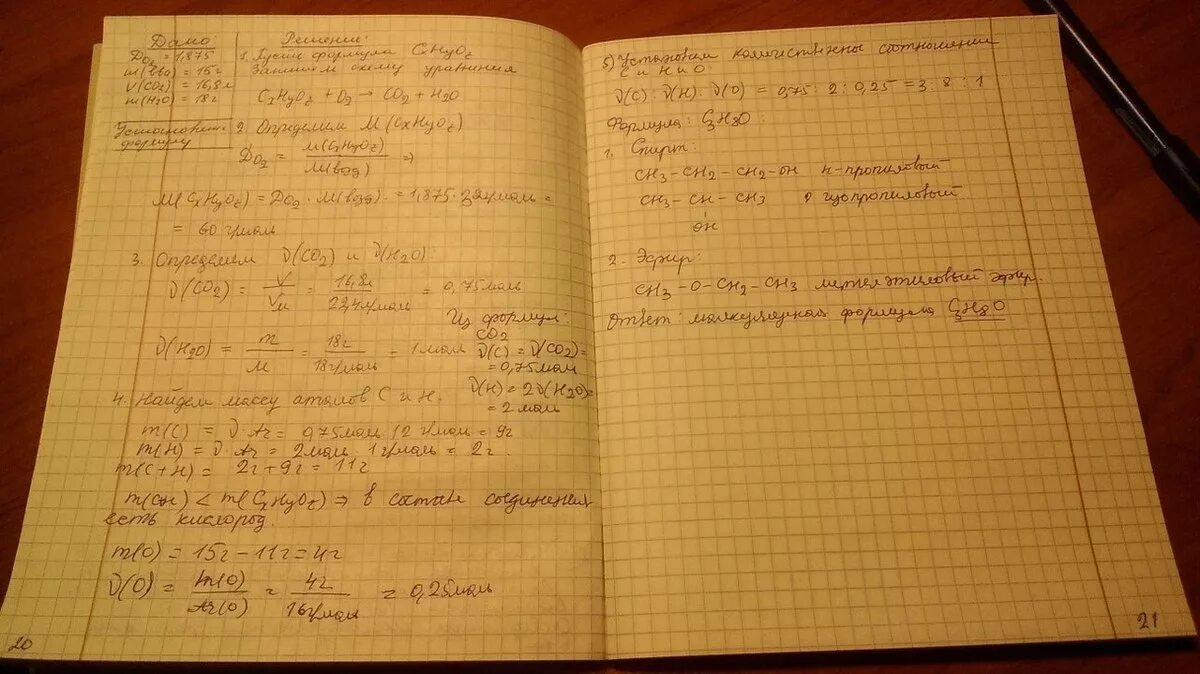 Дано:
D O2 = 1,875
m(в-во) = 15г
V(CO2) = 16,8л
m(H2O) = 18г
Установить
формулу
Решение:
1. Пусть формула CxHyOz
Запишем схему уравнения
CxHyOz + O2 → CO2 + H2O
2. Определяем M(CxHyOz)
DO2 = M(CxHyOz) / M(возд) ⇒
M(CxHyOz) = DO2 · M(возд) = 1,875 · 32г/моль =
= 60 г/моль
3. Определяем ν(CO2) и ν(H2O):
ν(CO2) = V / Vм = 16,8л / 22,4л/моль = 0,75моль
ν(H2O) = m / M = 18г / 18г/моль = 1моль
Из формул:
CO2
ν(C) = ν(CO2) =
= 0,75моль
ν(H) = 2ν(H2O) =
= 2моль
4. Найдем массу атомов C и H.
m(C) = ν · Ar = 0,75моль · 12 г/моль = 9г
m(H) = ν · Ar = 2моль · 1г/моль = 2г.
m(C+H) = 2г + 9г = 11г
m(CH) < m(CxHyOz) ⇒ в составе соединения
есть кислород.
m(O) = 15г – 11г = 4г
ν(O) = m(O) / Ar(O) = 4г / 16г/моль = 0,25моль
20
5) Установим количественны соотношении
C и H и O:
ν(C) : ν(H) : ν(O) = 0,75 : 2 : 0,25 = 3 : 8 : 1
Формула: C3H8O :
1. Спирт:
CH3 – CH2 – CH2 – OH н-пропиловый
CH3 – CH – CH3 изопропиловый
OH
2. Эфир:
CH3 – O – CH2 – CH3 метилэтиловый эфир.
Ответ: молекулярная формула C3H8O
21